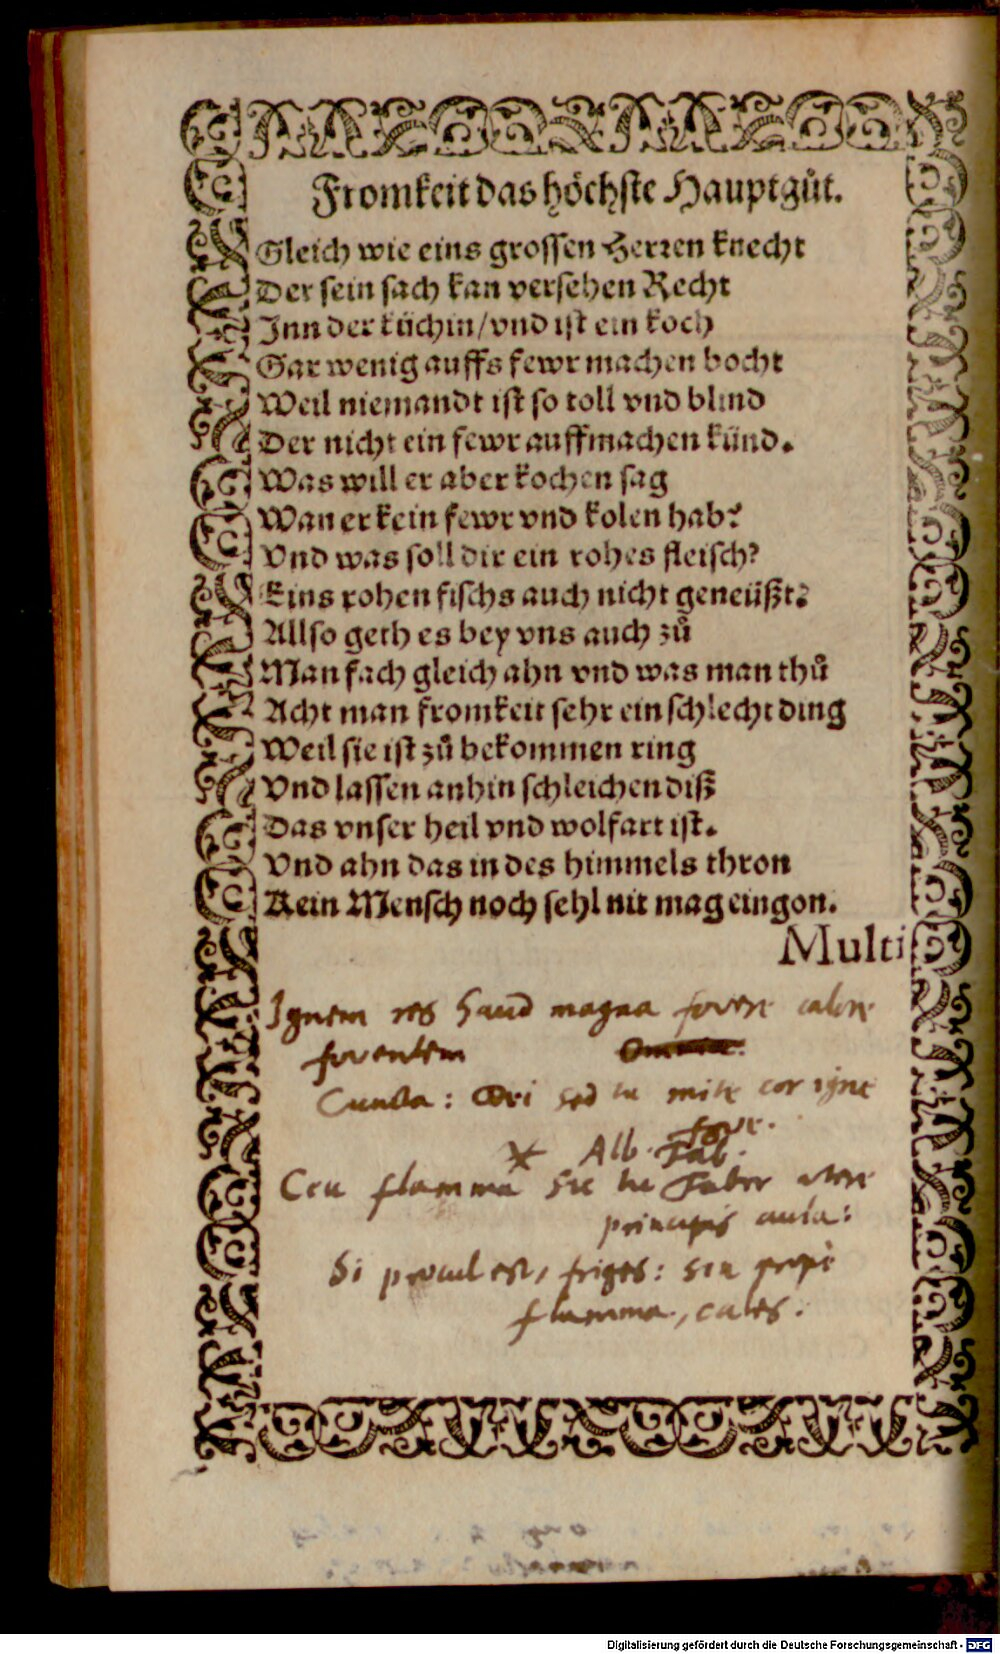 Fromkeit das höchste Hauptgůt.
Gleich wie eins grossen Herren knecht
Der sein sach kan versehen Recht
Inn der küchin/vnd ist ein koch
Gar wenig auffs fewr machen bocht
Weil niemandt ist so toll vnd blind
Der nicht ein fewr auffmachen künd.
Was will er aber kochen sag
Wan er kein fewr vnd kolen hab?
Vnd was soll dir ein rohes fleisch?
Eins rohen fischs auch nicht geneüßt?
Allso geth es bey vns auch zů
Man fach gleich ahn vnd was man thů
Acht man fromkeit sehr ein schlecht ding
Weil sie ist zů bekommen ring
Vnd lassen anhin schleichen diß
Das vnser heil vnd wolfart ist.
Vnd ahn das in des himmels thron
Kein Mensch noch sehl nit mag eingon.
Multi
Ignem res haud magna fovere calore
foventem
Cuncta: Dei sed tu mite cor igne
fove.
* Alb. Fab.
Ceu flamma sic tu Faber utere
principis aula:
Si procul est, friges: sin propè
flamma, cales.
Digitalisierung gefördert durch die Deutsche Forschungsgemeinschaft - DFG